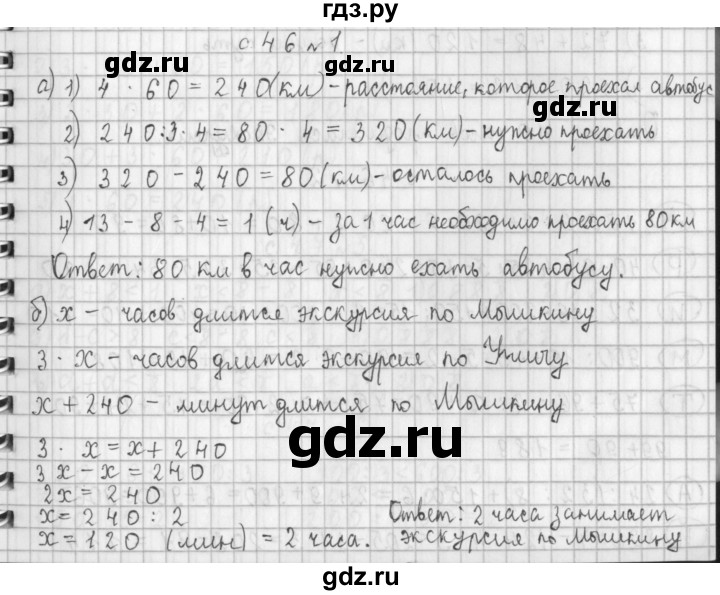 гдз.ру
с 46 № 1
а) 1) 4 · 60 = 240 (км) - расстояние, которое проехал автобус
2) 240 : 3 · 4 = 80 · 4 = 320 (км) - нужно проехать
3) 320 - 240 = 80 (км) - осталось проехать
4) 13 - 8 - 4 = 1 (ч) - за 1 час необходимо проехать 80 км
Ответ: 80 км в час нужно ехать автобусу.
б) x - часов длится экскурсия по Мышкину
3 · x - часов длится экскурсия по Угличу
x + 240 - минут длится по Мышкину
3 · x = x + 240
3x - x = 240
2x = 240
x = 240 : 2
x = 120 (мин) = 2 часа.
Ответ: 2 часа занимает
экскурсия по Мышкину
gdz.ru
gdz.ru
gdz.ru
gdz.ru
gdz.ru
gdz.ru
gdz.ru